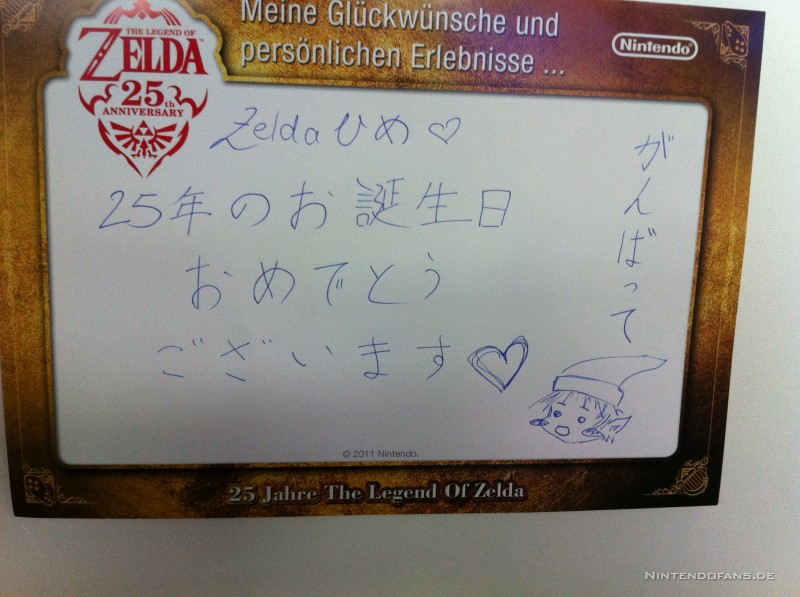 THE LEGEND OF
ZELDA™
25th
ANNIVERSARY
Meine Glückwünsche und
persönlichen Erlebnisse ...
Nintendo®
Zeldaひめ♡
25年のお誕生日
おめでとう
ございます♡
がんばって
© 2011 Nintendo.
25 Jahre The Legend Of Zelda
NINTENDOFANS.DE